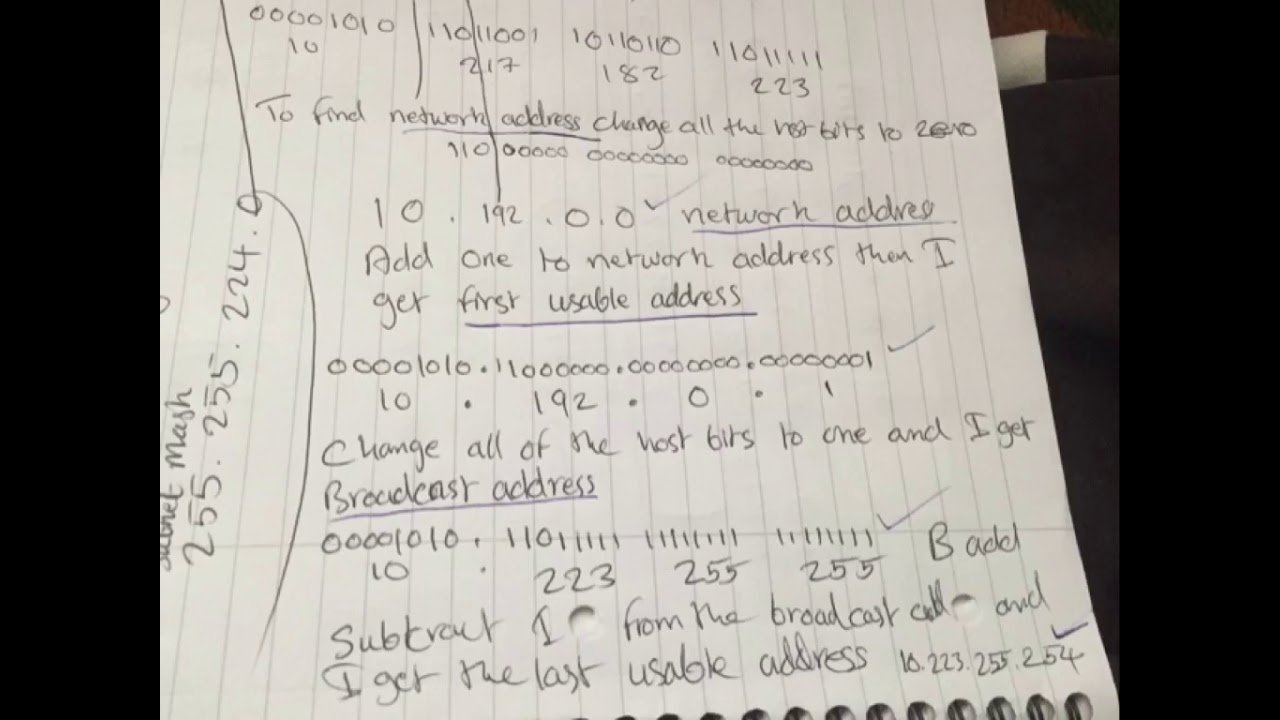 00001010 11011001 10110110 11011111
10 217 182 223
To find network address change all the host bits to zero
11000000 00000000 00000000
10 . 192 . 0 . 0 ✓ network addres
Add one to network address then I
get first usable address
00001010.11000000.00000000.00000001 ✓
10 . 192 . 0 . 1
Change all of the host bits to one and I get
Broadcast address
00001010 . 11011111 11111111 11111111 ✓
10 . 223 255 255 B add
Subtract 1 from the broadcast and
I get the last usable address 10.223.255.254 ✓
subnet mask
255.255.224.0